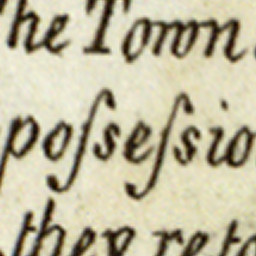 he Town
poſseſsio
they reto